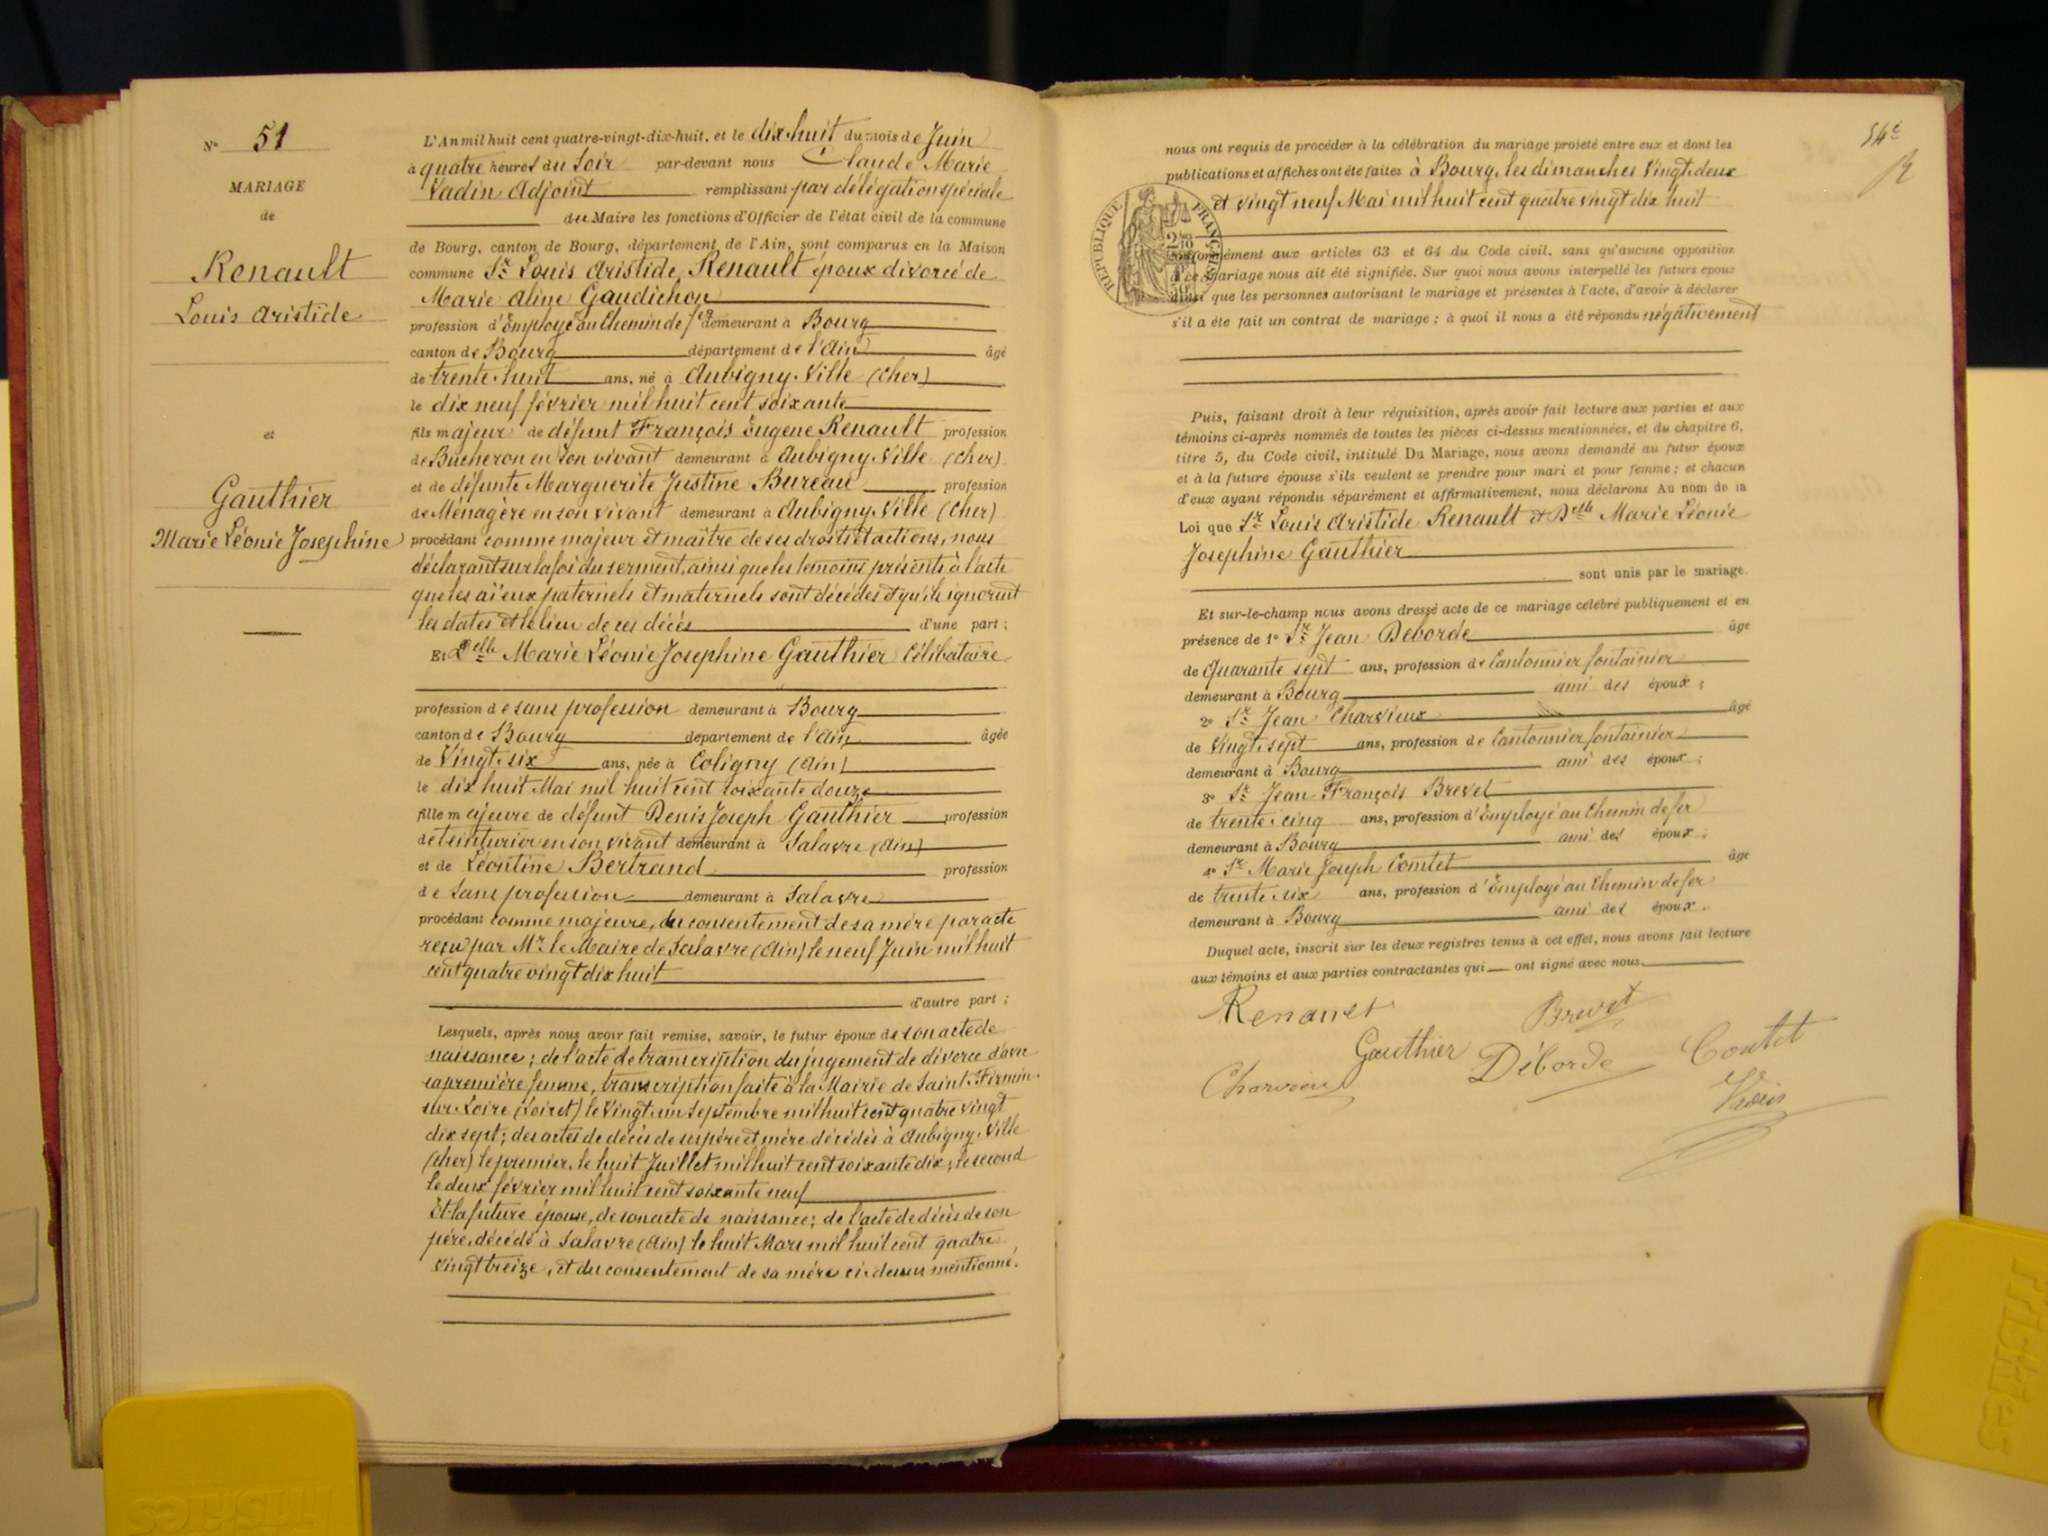 N° 51
MARIAGE
de
Renault
Louis Aristide
et
Gauthier
Marie Léonie Josephine
L'An mil huit cent quatre-vingt-dix-huit, et le dix huit du mois de Juin
à quatre heures du soir par-devant nous Claude Marie
Vadin Adjoint remplissant par délégation spéciale
du Maire les fonctions d'Officier de l'état civil de la commune
de Bourg, canton de Bourg, département de l'Ain, sont comparus en la Maison
commune Sr Louis Aristide Renault époux divorcé de
Marie Aline Gaudichon
profession d'Employé au Chemin de fer demeurant à Bourg
canton de Bourg département de l'Ain âgé
de trente huit ans, né à Aubigny-Ville (Cher)
le dix neuf février mil huit cent soixante
fils majeur de défunt François Eugène Renault profession
de Bucheron en son vivant demeurant à Aubigny-Ville (Cher)
et de défunte Marguerite Justine Bureau profession
de Ménagère en son vivant demeurant à Aubigny-Ville (Cher)
procédant comme majeur et maître de ses droits et actions, nous
déclarant sur la foi du serment, ainsi que les témoins présents à l'acte
que les aïeux paternels et maternels sont décédés et qu'ils ignorent
les dates et le lieu de ces décés d'une part ;
Et Delle Marie Léonie Josephine Gauthier Célibataire
profession de sans profession demeurant à Bourg
canton de Bourg département de l'Ain âgée
de Vingt-six ans, née à Coligny (Ain)
le dix huit Mai mil huit cent soixante douze
fille majeure de défunt Denis Joseph Gauthier profession
de teinturier en son vivant demeurant à Salavre (Ain)
et de Léontine Bertrand profession
de sans profession demeurant à Salavre
procédant comme majeure, du consentement de sa mère par acte
reçu par Mr le Maire de Salavre (Ain) le neuf Juin mil huit
cent quatre vingt dix huit
d'autre part ;
Lesquels, après nous avoir fait remise, savoir, le futur époux de son acte de
naissance ; de l'acte de transcription du jugement de divorce d'avec
sa première femme, transcription faite à la Mairie de Saint-Firmin-
sur-Loire (Loiret) le Vingt-un Septembre mil huit cent quatre vingt
dix sept ; des actes de décès de ses père et mère décédés à Aubigny-Ville
(Cher) le premier, le huit Juillet mil huit cent soixante dix ; le second
le deux février mil huit cent soixante neuf
Et la future épouse, de son acte de naissance ; de l'acte de décès de son
père, décédé à Salavre (Ain) le huit Mars mil huit cent quatre
vingt treize, et du consentement de sa mère ci-dessus mentionné.
54e
nous ont requis de procéder à la célébration du mariage projeté entre eux et dont les
publications et affiches ont été faites à Bourg, les dimanches Vingt-deux
et Vingt neuf Mai mil huit cent quatre vingt dix huit
RÉPUBLIQUE FRANÇAISE
conformément aux articles 63 et 64 du Code civil, sans qu'aucune opposition
à ce mariage nous ait été signifiée. Sur quoi nous avons interpellé les futurs époux
ainsi que les personnes autorisant le mariage et présentes à l'acte, d'avoir à déclarer
s'il a été fait un contrat de mariage ; à quoi il nous a été répondu négativement
Puis, faisant droit à leur réquisition, après avoir fait lecture aux parties et aux
témoins ci-après nommés de toutes les pièces ci-dessus mentionnées, et du chapitre 6,
titre 5, du Code civil, intitulé Du Mariage, nous avons demandé au futur époux
et à la future épouse s'ils veulent se prendre pour mari et pour femme ; et chacun
d'eux ayant répondu séparément et affirmativement, nous déclarons Au nom de la
Loi que Sr Louis Aristide Renault et Delle Marie Léonie
Josephine Gauthier
sont unis par le mariage.
Et sur-le-champ nous avons dressé acte de ce mariage célébré publiquement et en
présence de 1° Sr Jean Deborde âgé
de Quarante sept ans, profession de Cantonnier fontainier
demeurant à Bourg ami des époux ;
2° Sr Jean Charvieux âgé
de Vingt-sept ans, profession de Cantonnier fontainier
demeurant à Bourg ami des époux ;
3° Sr Jean François Brevet
de trente-cinq ans, profession d'Employé au Chemin de fer
demeurant à Bourg ami des époux ;
4° Sr Marie Joseph Comtet âgé
de trente-six ans, profession d'Employé au Chemin de fer
demeurant à Bourg ami des époux.
Duquel acte, inscrit sur les deux registres tenus à cet effet, nous avons fait lecture
aux témoins et aux parties contractantes qui ont signé avec nous
Renault
Brevet
Gauthier
Déborde
Comtet
Charvieux
Vadin
Friskies
Friskies